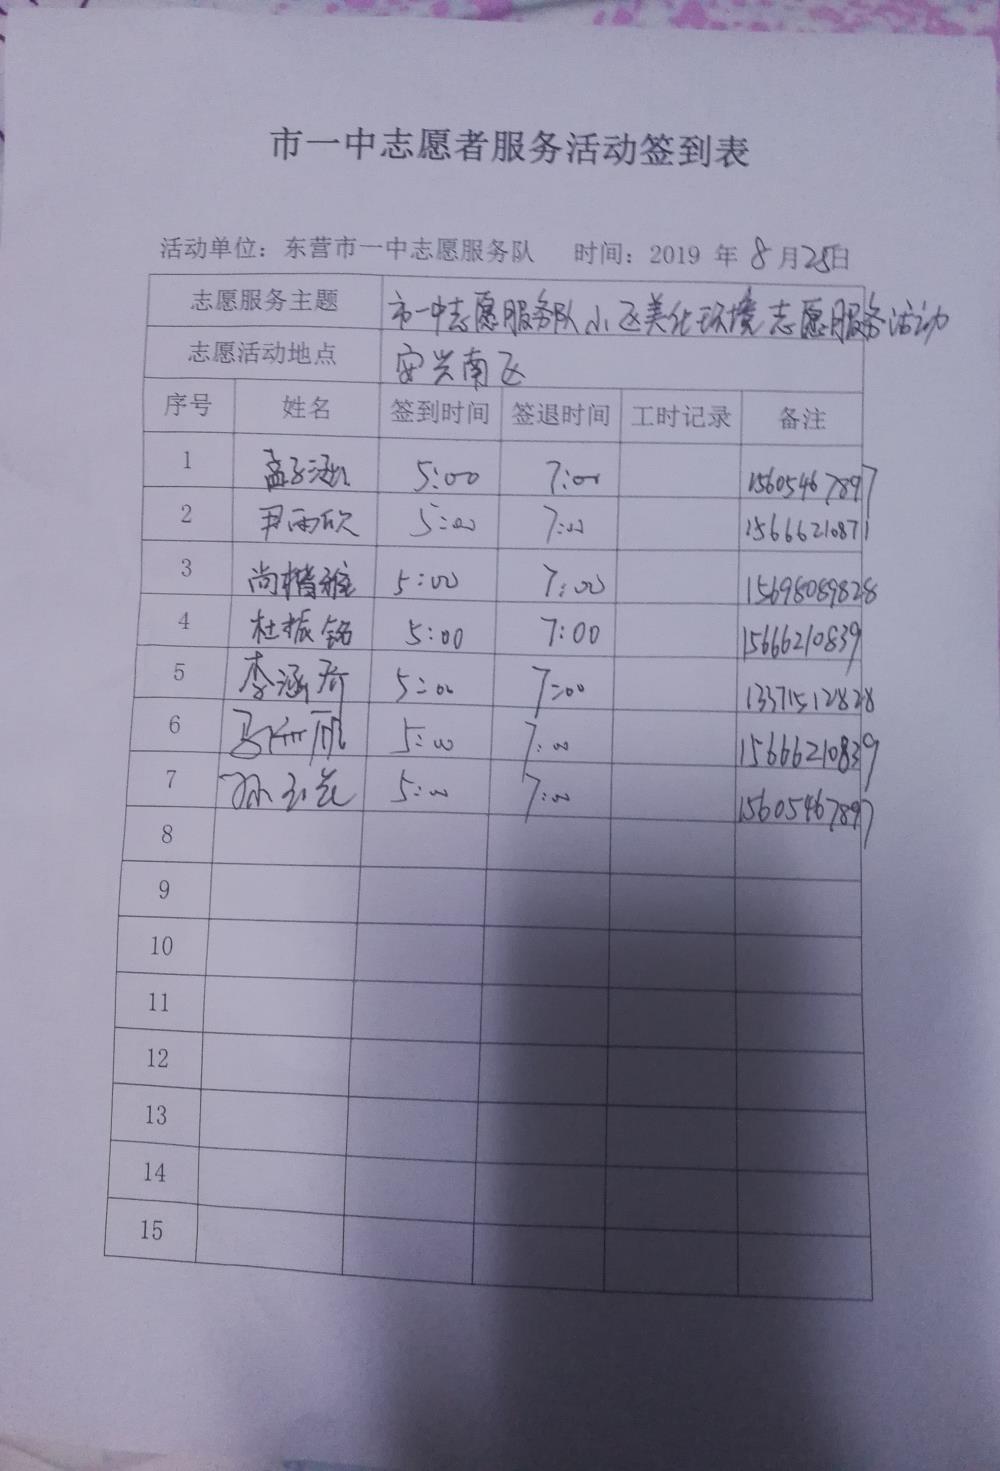 市一中志愿者服务活动签到表
活动单位：东营市一中志愿服务队 时间：2019 年 8 月 25日
志愿服务主题 市一中志愿服务队小区美化环境志愿服务活动
志愿活动地点 安兴南区
序号 姓名 签到时间 签退时间 工时记录 备注
1 孟子涵 5:00 7:00 15605467897
2 尹雨欣 5:00 7:00 15666210871
3 尚楷雅 5:00 7:00 15698089828
4 杜振铭 5:00 7:00 15666210839
5 李涵乔 5:00 7:00 13371512828
6 5:00 7:00 15666210839
7 5:00 7:00 15605467897
8
9
10
11
12
13
14
15